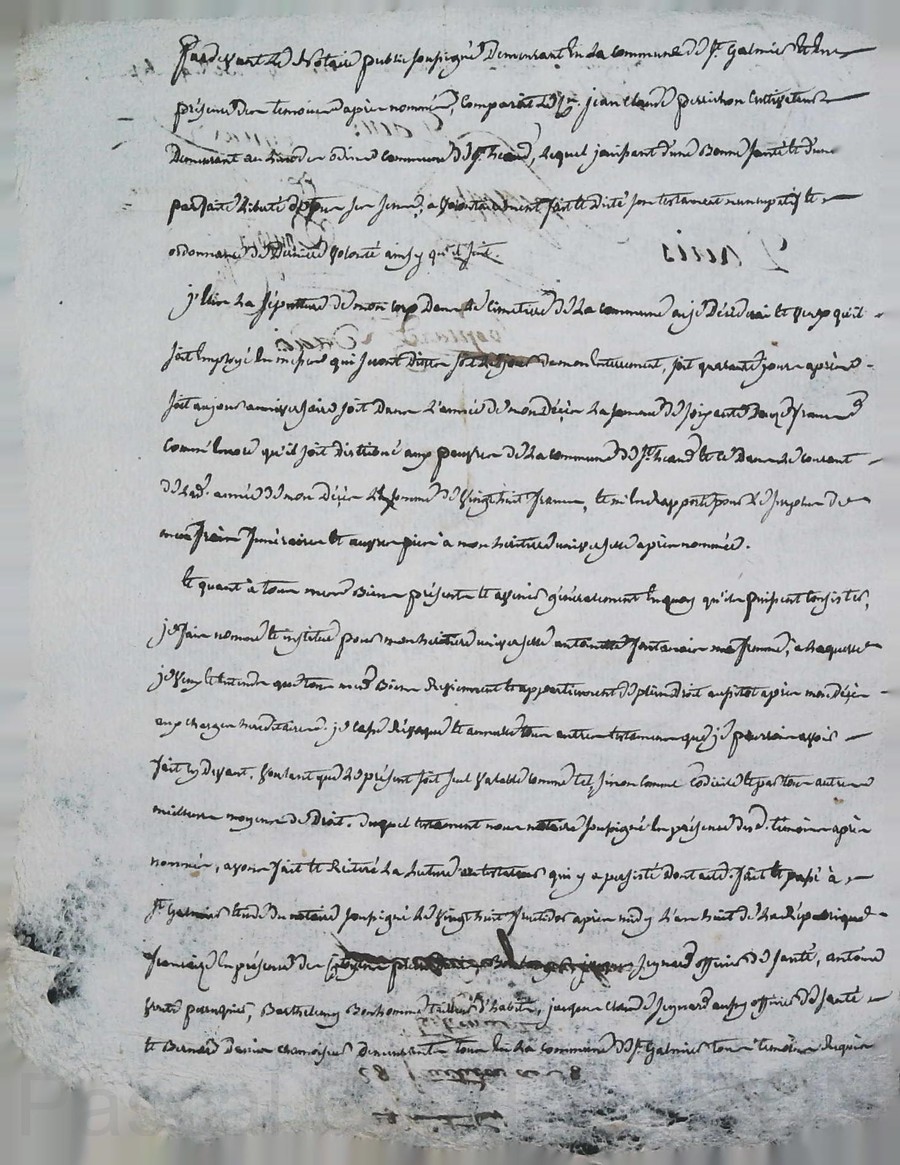 Pardevant le Notaire public soussigné Demeurant en la commune de St. Galmier et en
présence des temoins après nommés, Comparait le Cen. jean Claude perichon Cultivateur
Demeurant au lieu commune de St. heand, Lequel jouissant d'une Bonne santé et d'une
parfaite liberté de tous ses sens, a volontairement fait et dicté son testament nuncupatif et
ordonnance de Derniere volonté ainsy qu'il suit.
j'Elise La sépulture de mon corp Dans le cimetiere de La commune ou je Décéderai et veux qu'il
soit Employé En messes qui seront Dittes soit le jour de mon Enterrement, soit quarante jours après
soit au jour anniversaire soit Dans L'année de mon Décès La somme de soixante Douze francs
comme Encore qu'il soit distribué aux pauvres de La commune de St. heand et ce Dans le courant
de lad. année de mon Décès La somme de vingt huit francs, et m'En rapporte pour Le surplus de
mes frais funéraires et œuvres pies à mon heritiere universelle après nommée.
Et quant à tous mes Biens présents et avenir généralement En quoy qu'ils puissent consister,
je fais nomme et institue pour mon heritiere universelle antoinette fontanais ma femme, à Laquelle
je veux et Entends que tous mes Biens Reviennent et appartiennent de plein Droit aussitot après mon Décès
aux charges hereditaires. je casse Révoque et annulle tous autres testamens que je pourrois avoir
fait cy devant. voulant que Le présent soit seul valable comme tel, sinon comme Codicile et par tous autres
meilleurs moyens de Droit. Duquel testament nous notaire soussigné En présence desd. temoins après
nommés, avons fait et Réitéré La Lecture au testateur qui y a persisté Dont acte. fait et passé à
St. Galmier Etude du notaire soussigné Le vingt huit fructidor après midy L'an huit de La République
francaise En présence des Citoyens Jeynard officier de santé, antoine
perruquier, Barthelemy Bonhomme tailleur d'habits, jacques Claude Jeynard aussy officier de santé
et Bernard chamoiseur demeurants tous En La commune de St. Galmier tous temoins Requis